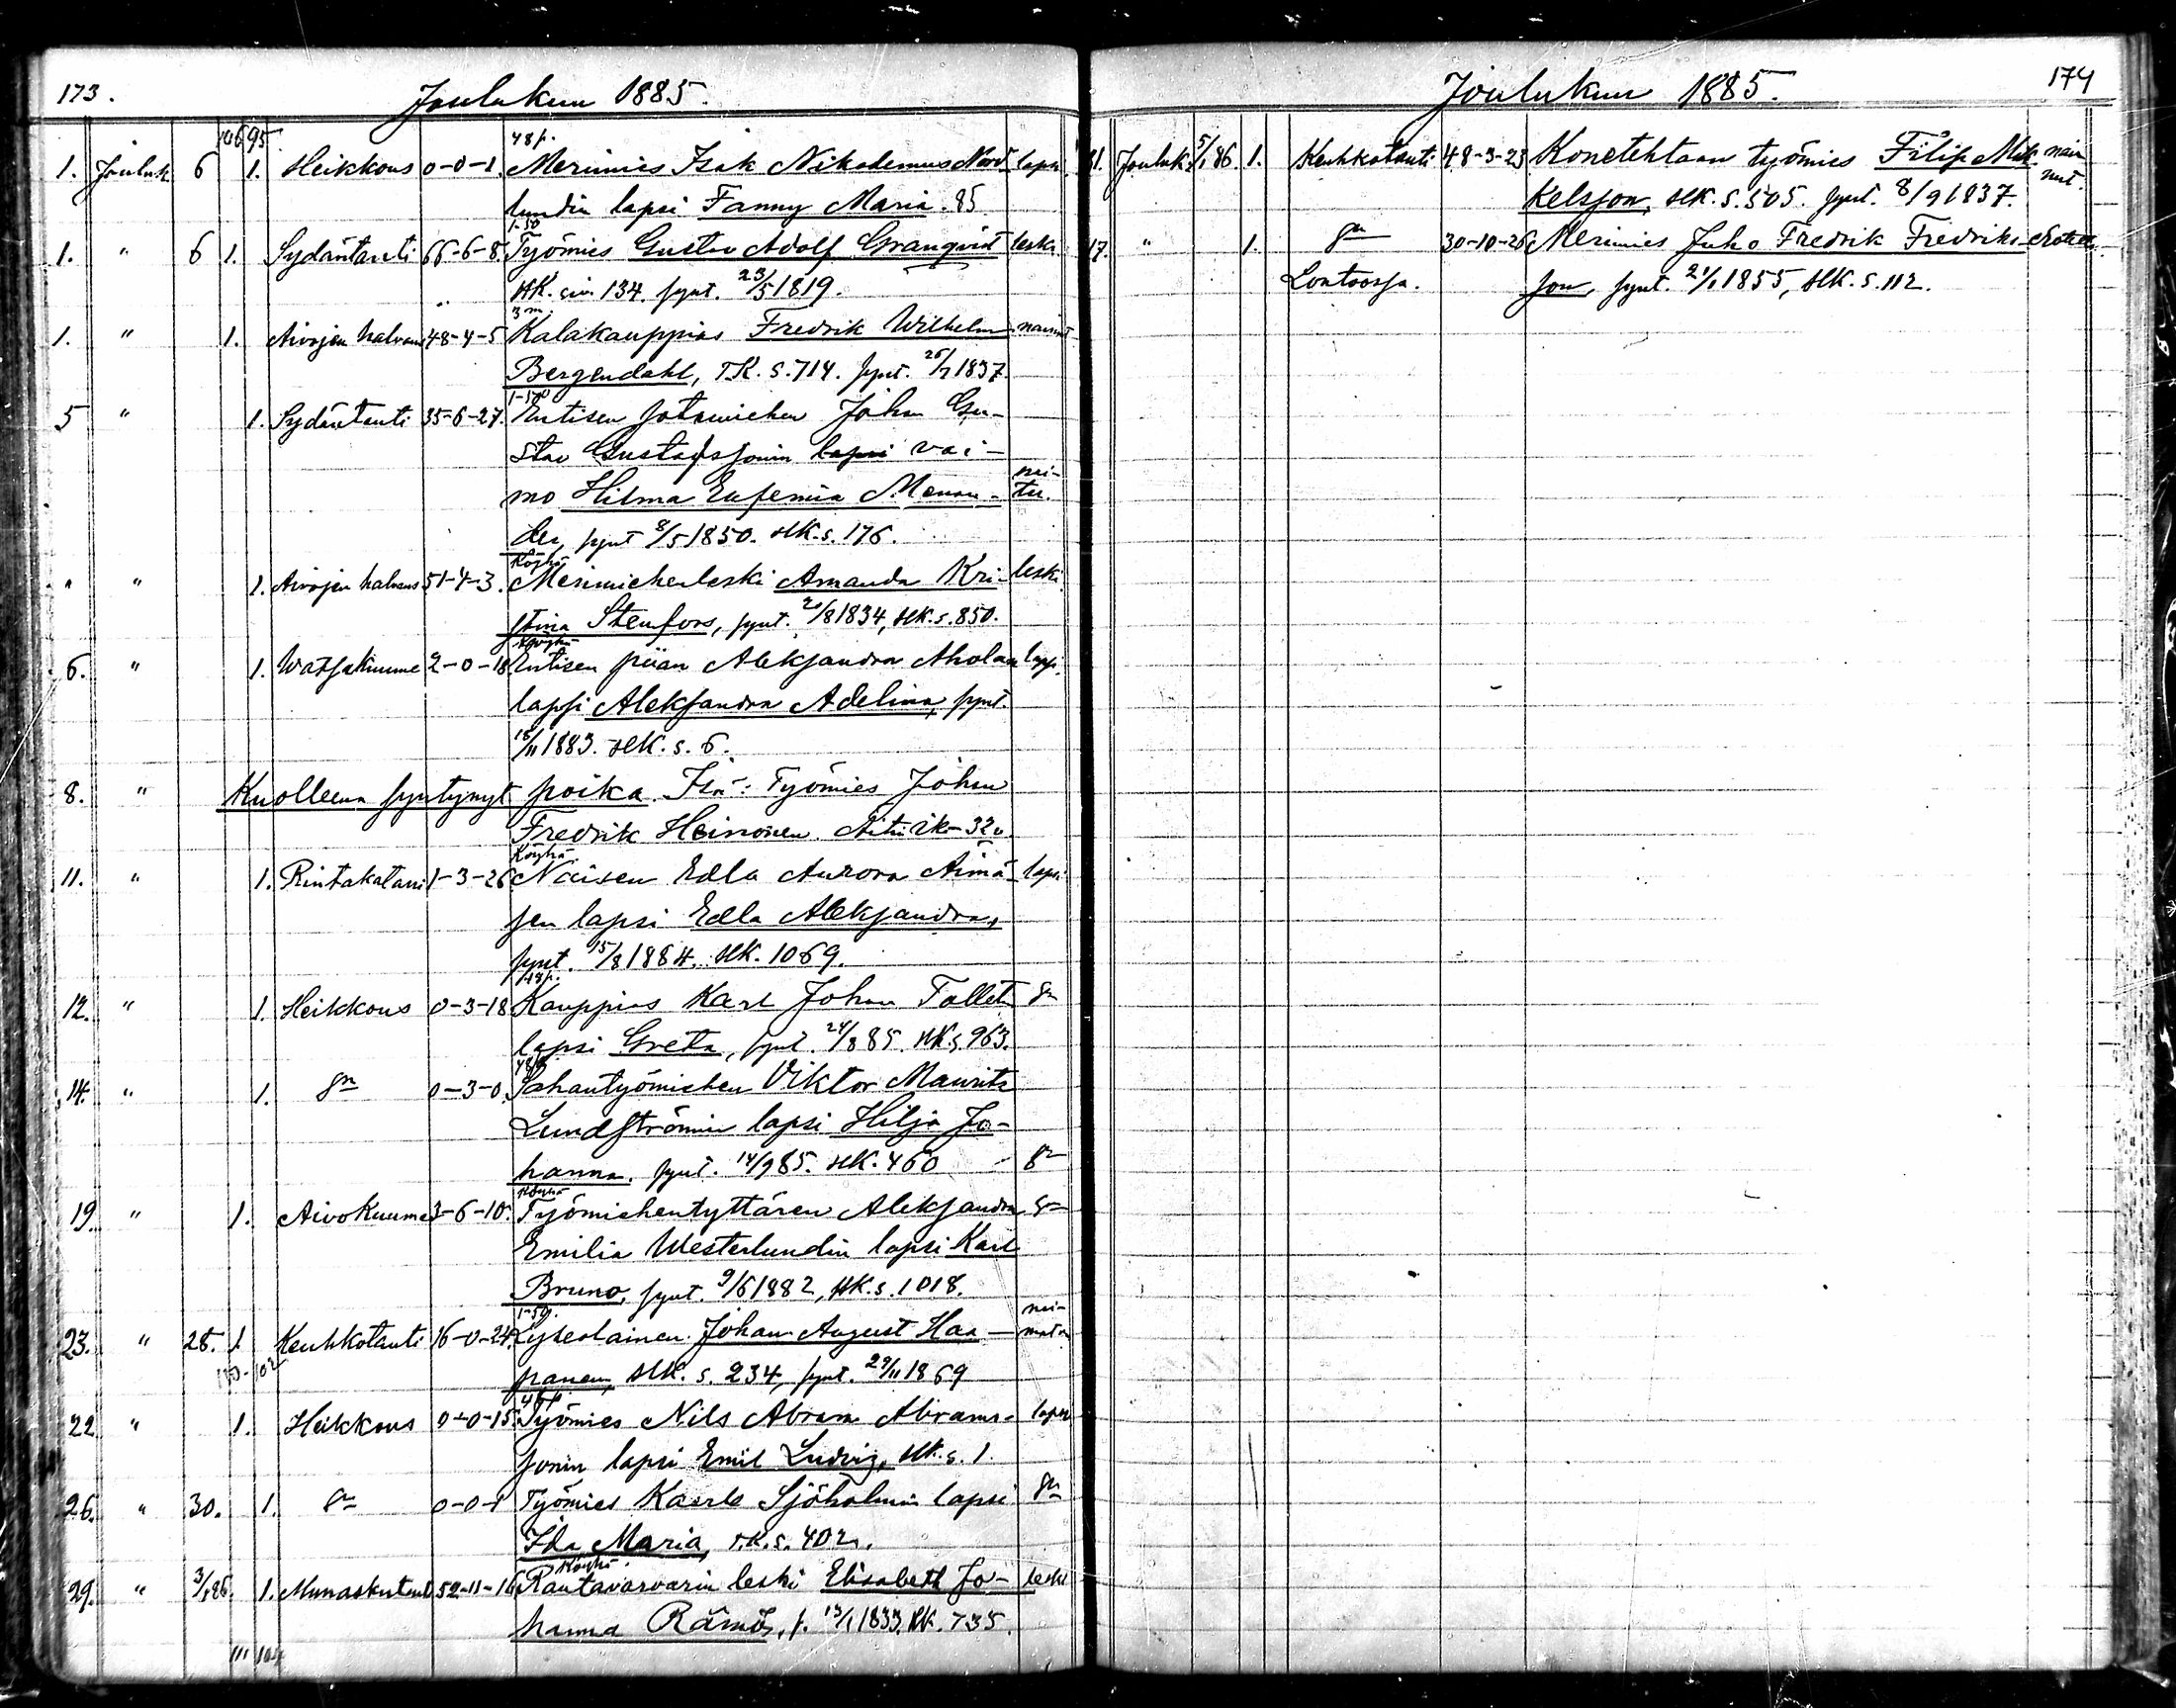 173.
Joulukuu 1885.
106 95
48 p.
1. Jouluk. 6 1. Heikkous 0-0-1. Merimies Isak Nikodemus Nord- lapsi
lundin lapsi Fanny Maria. 85
1-50
1. " 6 1. Sydäntauti 66-6-8. Työmies Gustav Adolf Granqvist leski
RK. siv. 134. synt. 23/5 1819.
3 m.
1. " 1. Aivojen halvaus 48-4-5 Kalakauppias Fredrik Wilhelm nainut
Bergendahl, T.K. s. 714. synt. 26/7 1837.
1-50
5 " 1. Sydäntauti 35-6-27. Entisen sotamiehen Johan Gu-
stav Gustafssonin lapsi vai-
mo Hilma Eufemia Menan- nai-
tu.
der, synt 8/5 1850. RK. s. 176.
Köyhä
" " 1. Aivojen halvaus 51-4-3. Merimiehenleski Amanda Kri- leski
stina Stenfors, synt. 2/8 1834, RK. s. 850.
Köyhä
6. " 1. Watsakuume 2-0-18 Entisen piian Aleksandra Aholan lapsi.
lapsi Aleksandra Adelina, synt.
18/11 1883. RK. s. 6.
8. " Kuolleena syntynyt poika. Isä: Työmies Johan
Fredrik Heinonen. Äitii ik- 32 v.
Köyhä.
11. " 1. Rintakatarri 1-3-26 Naisen Edla Aurora Äimä- lapsi
sen lapsi Edla Aleksandra,
synt. 15/8 1884. RK. 1069.
48 p.
12. " 1. Heikkous 0-3-18 Kauppias Karl Johan Tallet
lapsi Greta, synt. 24/8 85. RK. s. 963.
48 p.
14. " 1. 0-3-0. Sahantyömiehen Viktor Maurits
Lundströmin lapsi Hilja Jo-
hanna. synt. 14/9 85. RK. 460
Köyhä
19. " 1. Aivokuume 3-6-10. Työmiehentyttären Aleksandra
Emilia Westerlundin lapsi Karl
Bruno, synt. 9/6 1882, RK. s. 1018.
1-50. nai-
23. " 28. 1 Keuhkotauti 16-0-24. Lyseolainen Johan August Haa- maton
110-102
panen, RK. s. 234, synt. 29/11 1869
48 p.
22 " 1. Heikkous 0-0-15. Työmies Nils Abram Abrams- lapsi
sonin lapsi Emil Ludvig, RK. s. 1.
26. " 30. 1. 0-0-1 Työmies Kaarle Sjöholmin lapsi
Ida Maria, r.k. s. 402.
Köyhä.
29. " 3/1 86. 1. Munaskutauti 52-11-16 Rautavarvarin leski Elisabeth Jo- leski
hanna Rämös, s. 13/1 1833. RK. 735.
111 104
Joulukuu 1885.
174
31. Jouluk. 5/1 86. 1. Keuhkotauti 48-3-23 Konetehtaan työmies Filip Mik- nai-
nut.
kelsson, RK. s. 505. synt. 8/9 1837.
17. " 1. 30-10-26 Merimies Juho Fredrik Fredriks-
Lontoossa. son, synt. 21/1 1855, RK. s. 112.